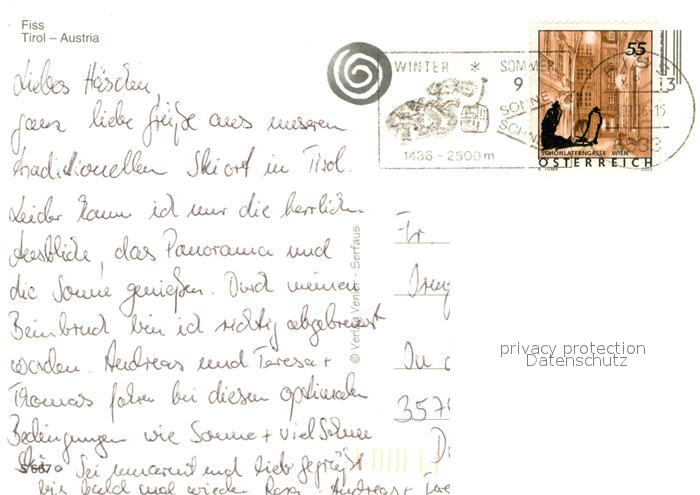 Fiss
Tirol – Austria
WINTER * SOMMER
9
SONNE
SCHNEE
1436 - 2500 m
55
SCHÖNLATERNGASSE WIEN
ÖSTERREICH
Liebes Häschen,
ganz liebe Grüße aus unserem
traditionellen Skiort in Tirol.
Leider kann ich nur die herrlichen
Ausblicke, das Panorama und
die Sonne genießen. Durch meinen
Beinbruch bin ich richtig abgebremst
worden. Andreas und Teresa +
Thomas fahren bei diesen optimalen
Bedingungen wie Sonne + viel Schnee
Ski. Sei umarmt und lieb gegrüßt
bis bald mal wieder Andreas +
© Verlag Venier - Serfaus
Fr.
In
privacy protection
Datenschutz